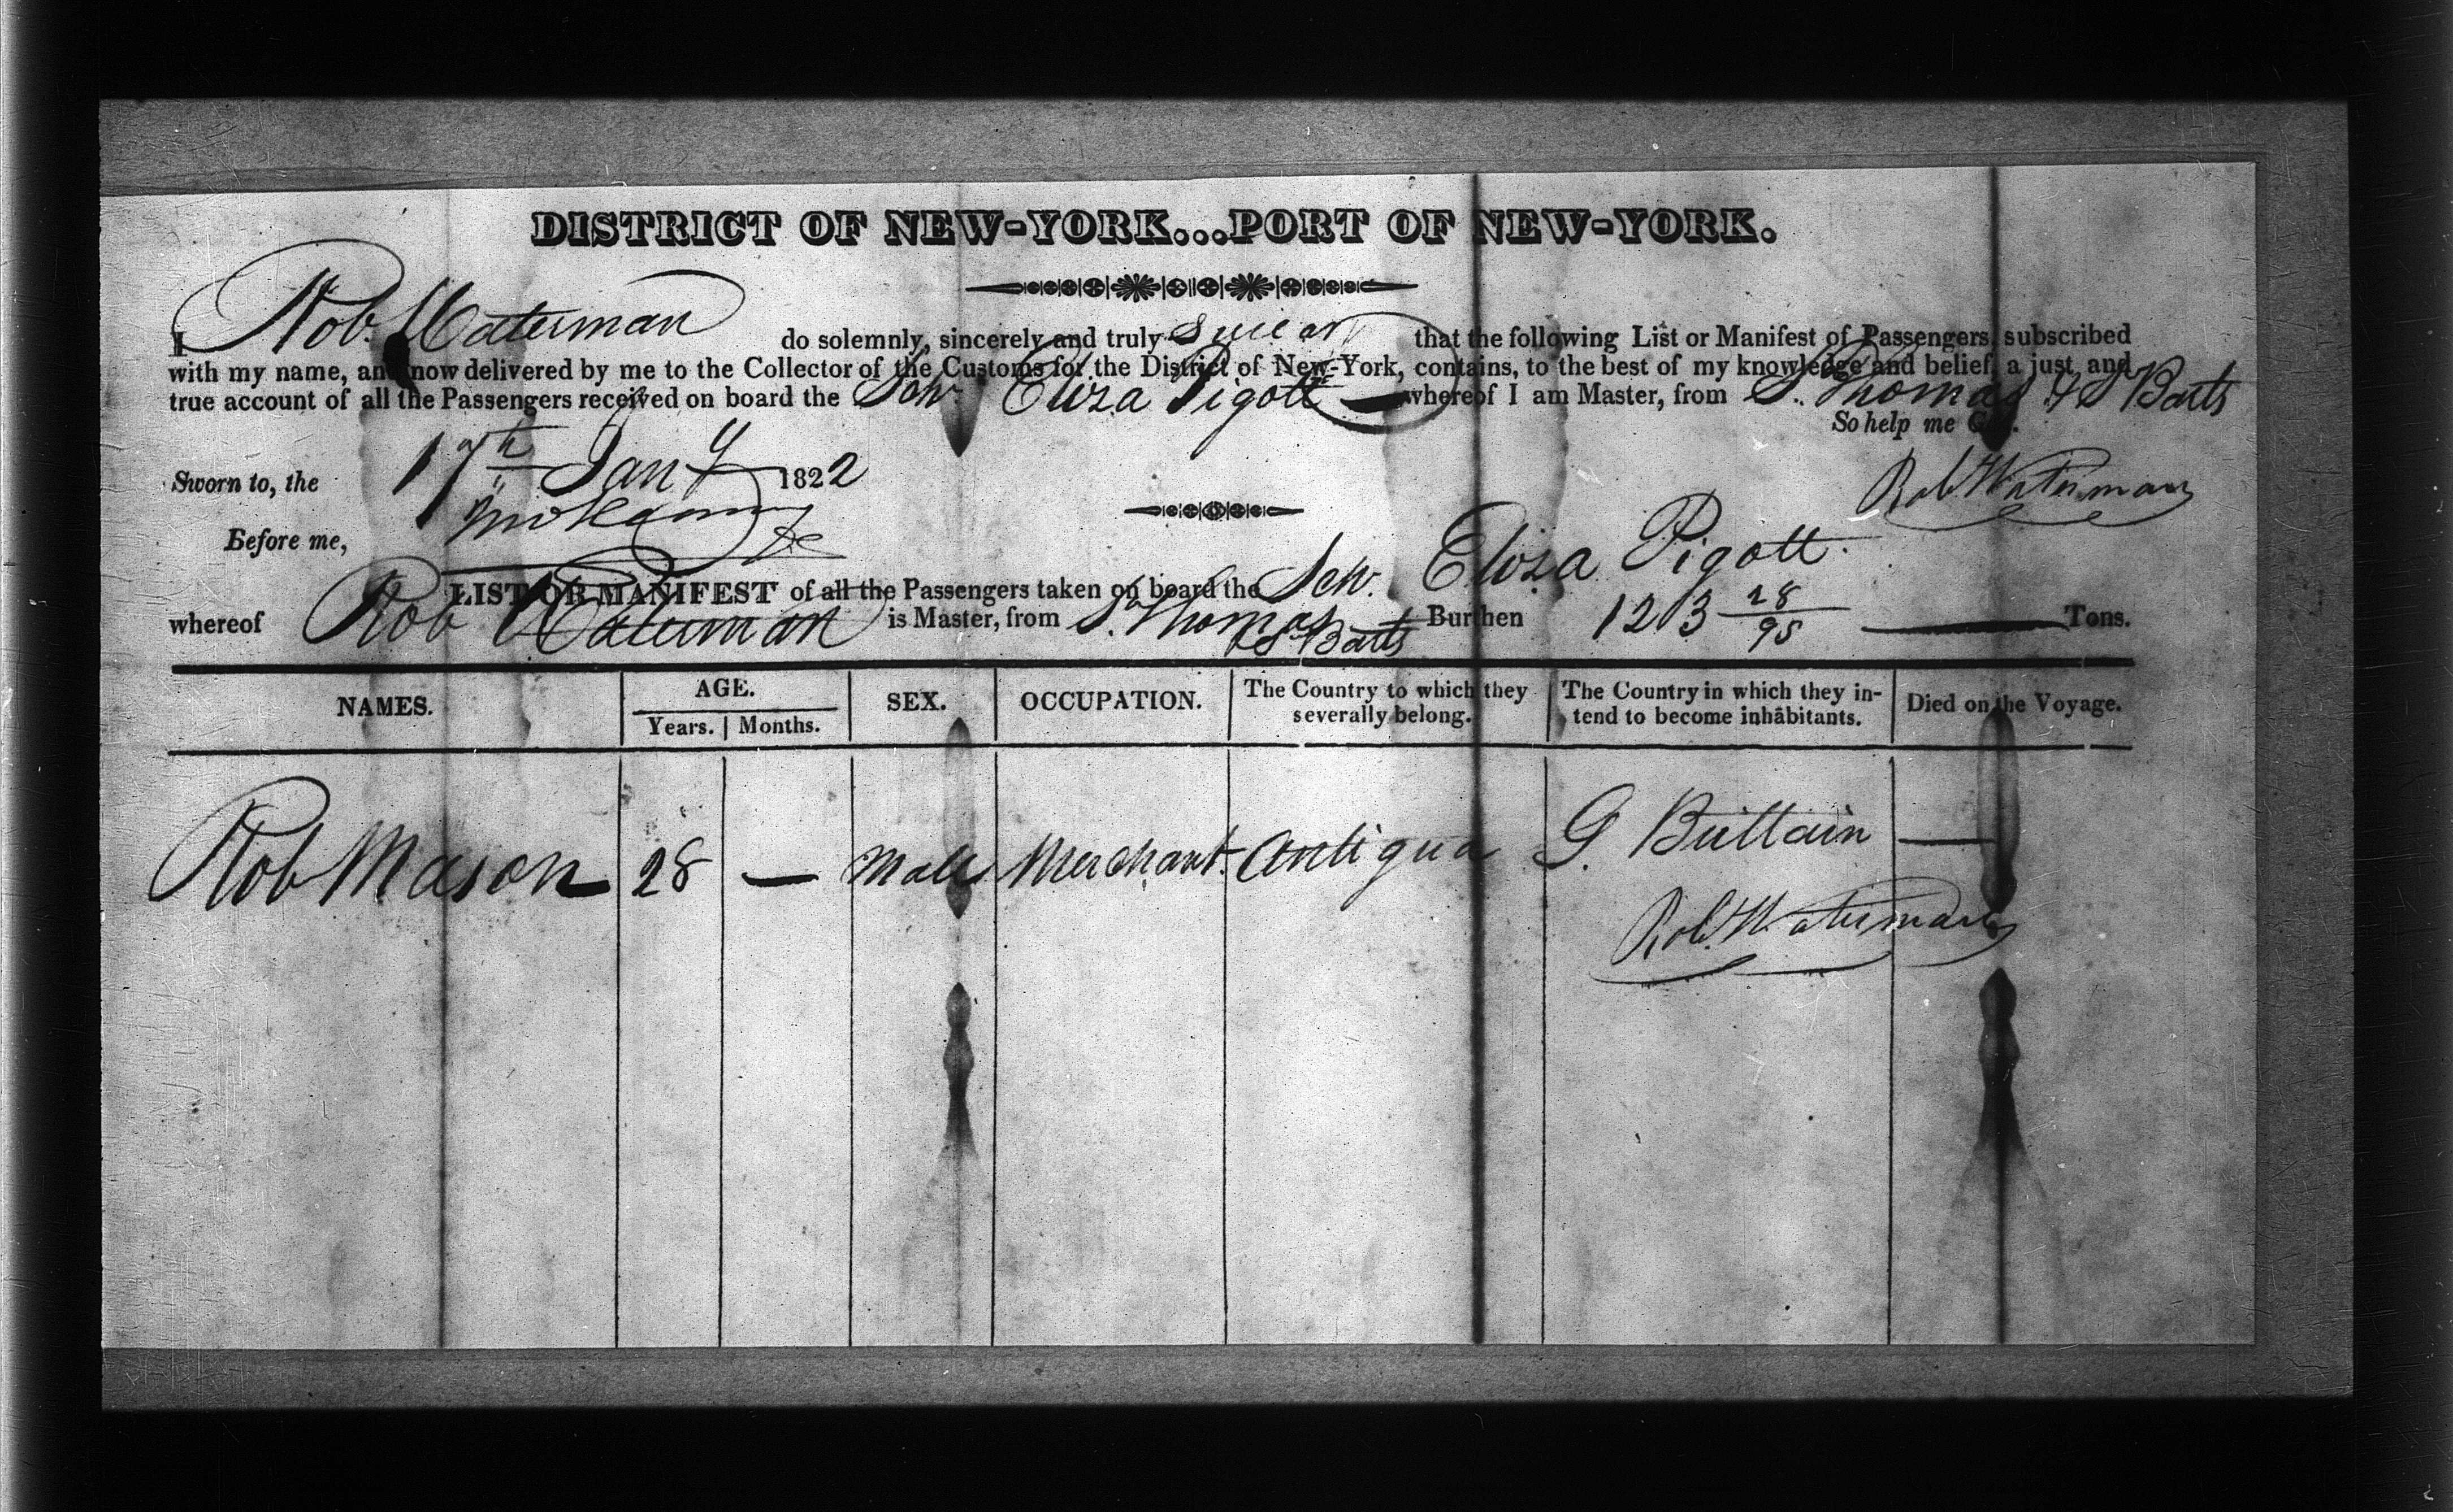 DISTRICT OF NEW-YORK...PORT OF NEW-YORK.
I Rob. Waterman do solemnly, sincerely and truly swear that the following List or Manifest of Passengers, subscribed
with my name, and now delivered by me to the Collector of the Customs for the District of New-York, contains, to the best of my knowledge and belief, a just and
true account of all the Passengers received on board the Schr. Eliza Pigott whereof I am Master, from St. Thomas & St Barts
So help me God.
Sworn to, the 17th Jany 1822
Rob Waterman
Before me,
LIST OR MANIFEST of all the Passengers taken on board the Schr. Eliza Pigott
whereof Rob Waterman is Master, from St. Thomas & St Barts Burthen 123 28/95 Tons.
NAMES. AGE. Years. Months. SEX. OCCUPATION. The Country to which they severally belong. The Country in which they intend to become inhabitants. Died on the Voyage.
Rob Mason 28 — Male Merchant. Antigua G. Brittain —
Rob. Waterman